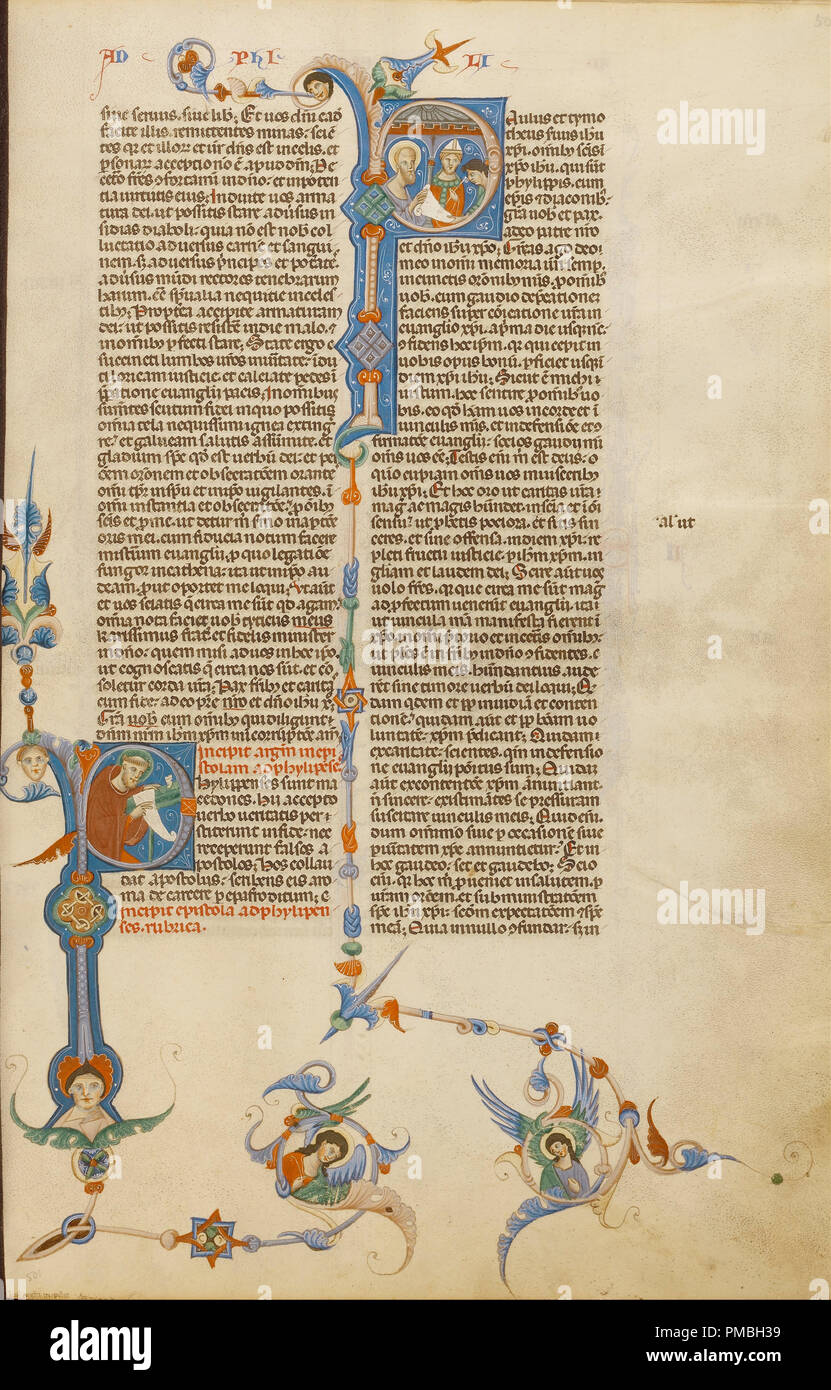 AD PHI LI
siue seruus. siue lib; Et uos dm ead
facite illis. remittentes minas. scie
tes qr et illor et ur dns est in celis. et
psonar acceptio no e apud dm; De
cetero frs ofortami in dno. et in poten
tia uirtutis eius; Induite uos arma
tura dei. ut possitis stare aduersus in
sidias diaboli. quia non est nob col
luctatio aduersus carne et sangui
nem. s; aduersus pncipes et potate.
aduersus mudi rectores tenebrarum
harum. et spiritualia nequitie in celes
tib; Propterea accipite armaturam
dei. ut possitis resiste in die malo. et
in omnib pfecti stare; State ergo
succincti lumbos uros in ueritate. idu
ti loricam iusticie. et calciate pedes i
ppatione euanglii pacis; In omnib
sumetes scutum fidei in quo possitis
omnia tela nequissimi ignea exting
re. et galeam salutis assumite. et
gladium sps qd est uerbu dei. et per
oem oronem et obsecratoem orante
omi tpr in spu et in ipso uigilantes. i
omi instantia et obsecratoe. p oib
scis et p me. ut detur m smo in aptoe
oris mei. cum fiducia notum facere
misterium euanglii. p quo legatioe
fungor in cathena. ita ut in ipso au
deam. put oportet me loqui; Ut aut
et uos sciatis que circa me sut qd agam.
omnia nota faciet uob tyticus meus
karissimus frater et fidelis minister
in dno. quem misi ad uos in hoc ipso.
ut cognoscatis que circa nos sut. et co
soletur corda ura; Pax frib et carita
cum fide. a deo pre nro et dno ihu x.
Gra uob cum omib qui diligunt
dnm nrm ihm in corruptoe am.
Incipit argm in epi
stolam ad phylipese
Phylipenses sunt ma
cedones. hii accepto
uerbo ueritatis per
stiterunt in fide. nec
receperunt falsos a
postolos; Hos collau
dat apostolus. scribens eis a ro
ma de carcere p epafroditum; e
incipit epistola ad phylipen
ses. rubrica.
Paulus et tymo
theus serui ihu
xpi. omib scis i
xpo ihu. qui sut
phylippis. cum
epis et diaconib.
gra uob et pax.
a deo patre nro
et dno ihu xpo; Gras ago deo
meo in omi memoria uri semp.
in cunctis oronib mis. p omib
uob. cum gaudio depcatione
faciens super coicatione ura in
euanglio xpi. a pma die usq nuc.
ofidens hoc ipm. qr qui cepit in
uobis opus bonu. pficiet usq i
diem xpi ihu; Sicut e michi i
iustum. hoc sentire p omib uo
bis. eo qd ham uos in corde et i
uinculis mis. et in defensioe et o
firmatoe euanglii. socios gaudii mi
oms uos ee; Testis eni m est deus. q
quo cupiam oms uos in uiscerib
ihu xpi; Et hoc oro ut caritas ura
mag ac magis hundet in scia. et i oi
sensu. ut pbetis pociora. et sitis sin
ceres. et sine offensa. in diem xpi. re
pleti fructu iusticie. p ihm xpm. in
gliam et laudem dei; Scire aut uos
uolo frs. qr que circa me sut mag
ad pfectum uenerut euanglii. ita i
ut uincula mea manifesta fierent i
xpo in omi ptorio et in ceteris omib.
ut ples e frib in dno ofidentes. e
uinculis meis. hundantius aude
rent sine timore uerbu dei loqui; Q
dam qdem et pp inuidia et conten
tione. quidam aut et pp bonam uo
luntate. xpm pdicant; Quidam i
ex caritate. scientes. qm in defensio
ne euanglii positus sum; Quidam
aut ex contentoe xpm anuntiant.
n sincere. existimates se pressuram
suscitare uinculis meis; Quid eni.
dum omi modo siue p occasione siue
p uitatem xpc annuntietur; Et in
hoc gaudeo. set et gaudebo; Scio
eni. qr hoc m pueniet in salutem. p
uram oroem. et subministratoem
sps ihu xpi. scdm expectatoem et spe
mea; Quia in nullo ofundar. s; in
·al' ut
alamy
a
Image ID: PMBH39
www.alamy.com